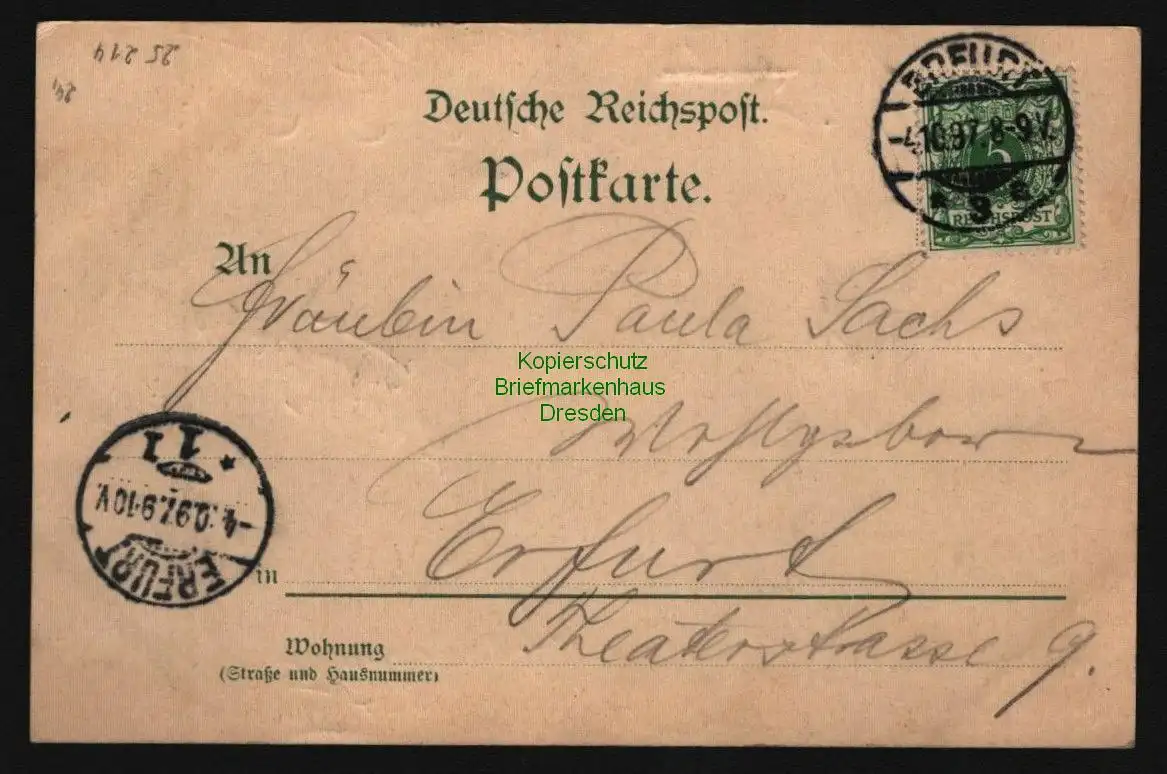 25 214
24,
Deutsche Reichspost.
Postkarte.
ERFURT
-4.10.97. 8-9V.
* 9 a
5
REICHSPOST
An
Fräulein Paula Sachs
Kopierschutz
Briefmarkenhaus
Dresden
Wohlgebor
* 11
-4.10.97. 9-10V.
ERFURT
in
Erfurt
Theaterstrasse 9.
Wohnung
(Straße und Hausnummer)